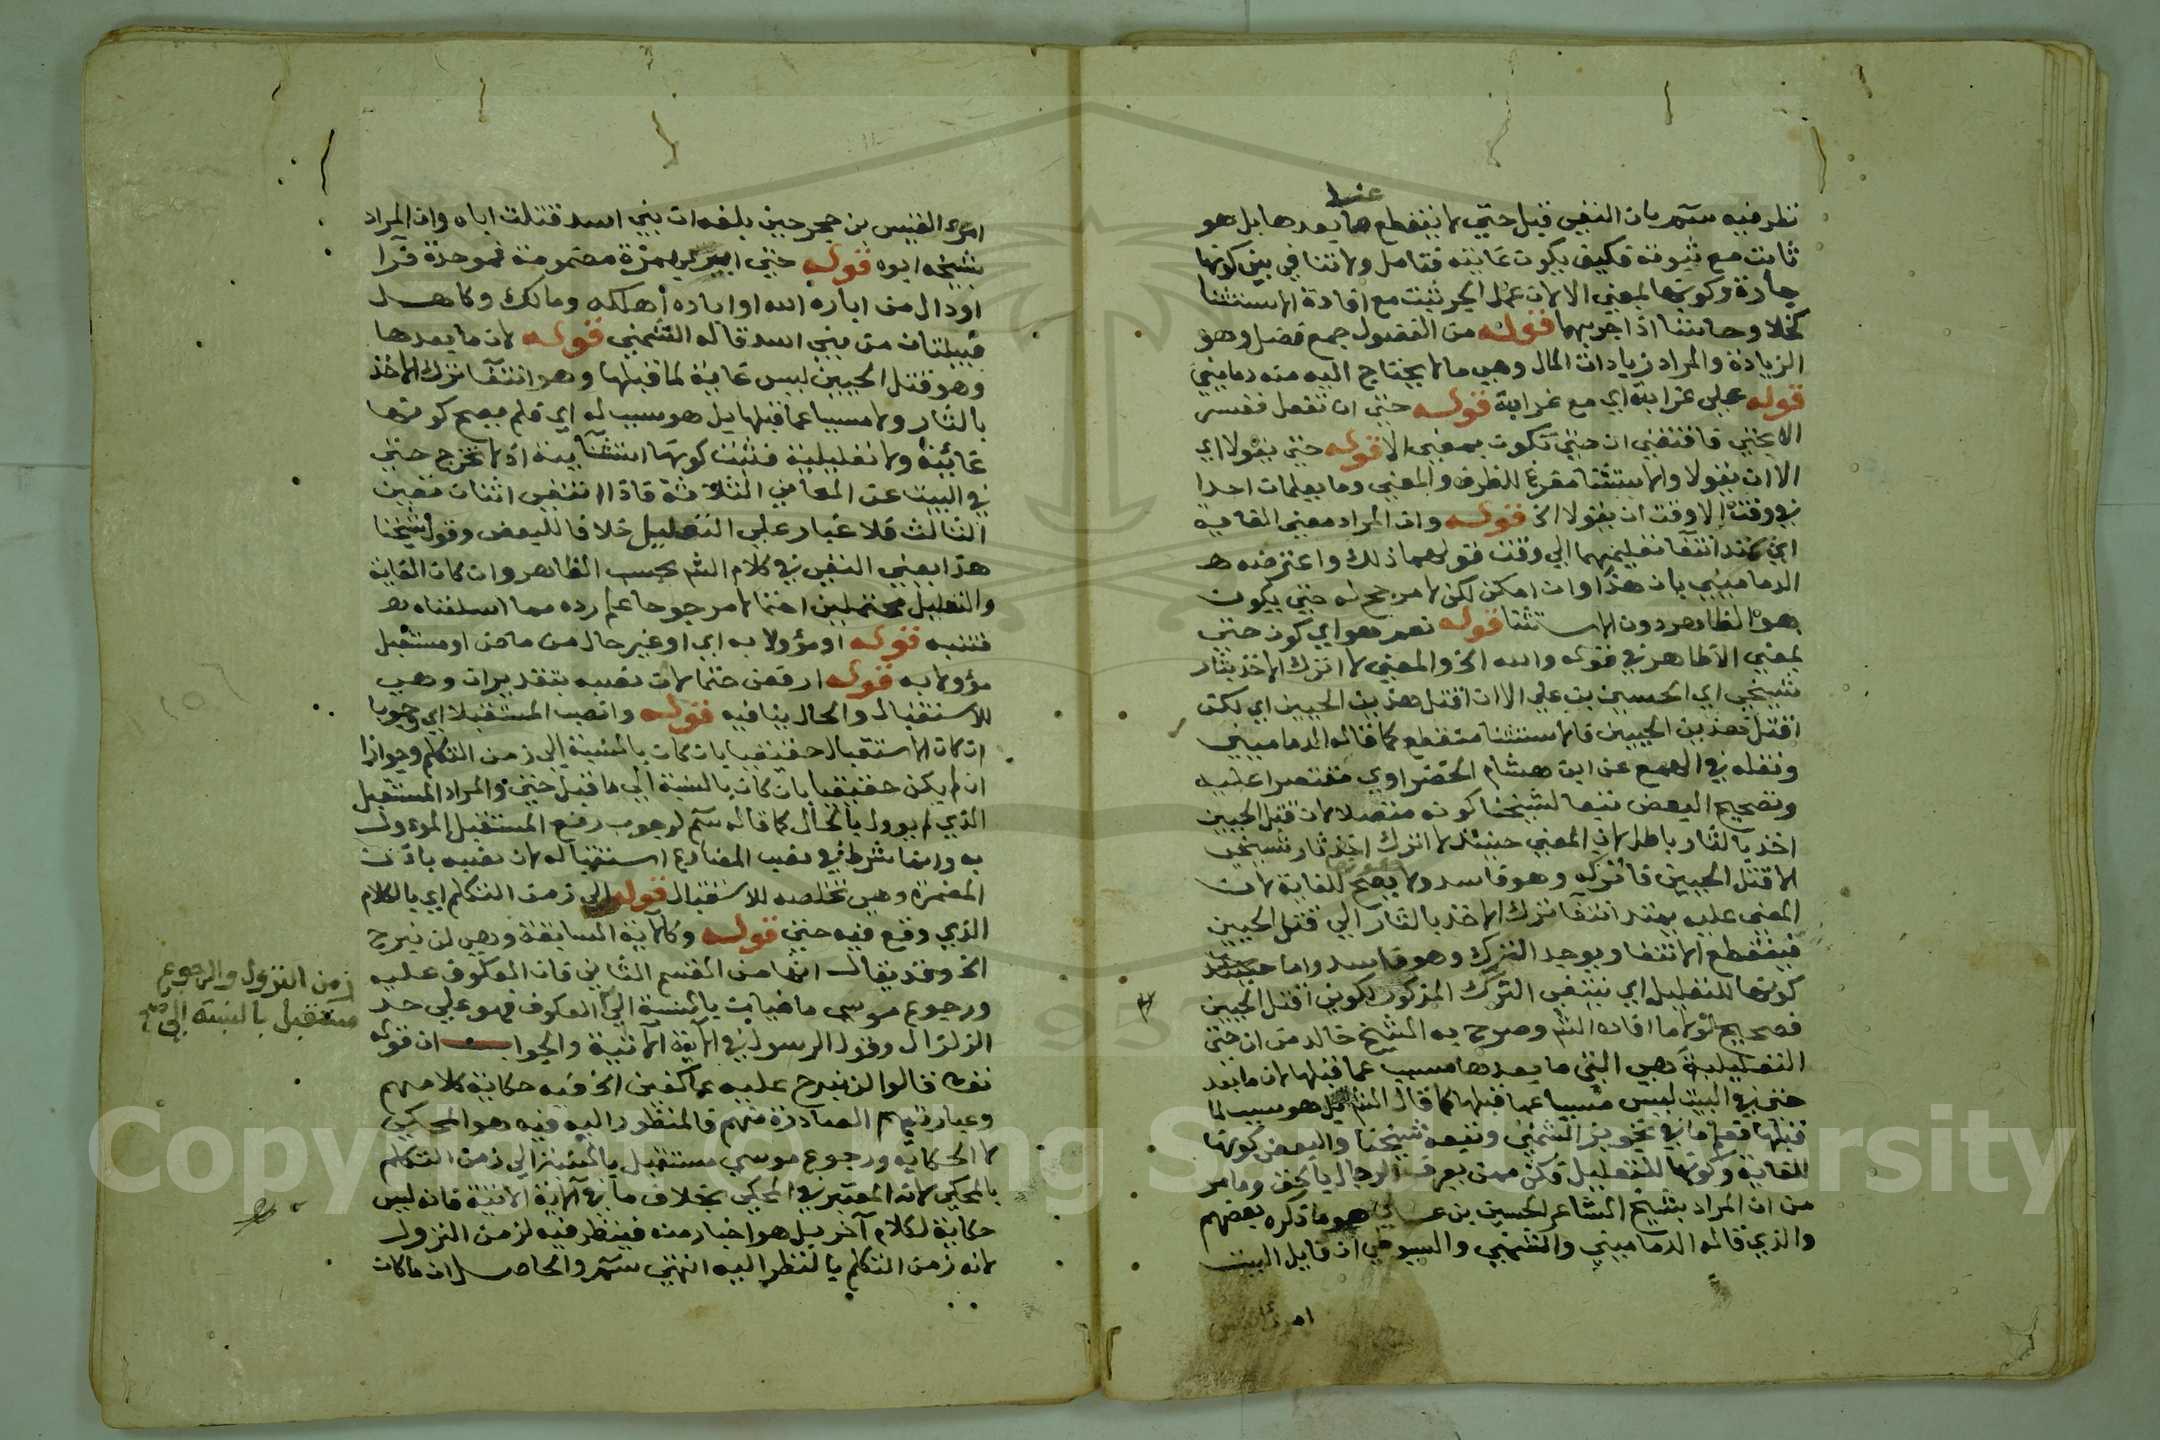 عند
نظر فيه سم بان النفي قبل حتى لا ينقطع بما بعدها بل هو
ثابت مع ثبوته فكيف يكون غايته فتامل ولا تنافي بين كونها
جارة وكونها بمعنى الا لان عمل الجر ثبت مع افادة الاستثنا
كخلا وحاشا اذا جر بهما قوله من الفضول جمع فضل وهو
الزيادة والمراد زيادات المال وهي ما لا يحتاج اليه منه دماميني
قوله على غرابته اي مع غرابة قوله حتى ان تفعل ففسر
الا بحتى فاقتضى ان حتى تكون بمعنى الا قوله حتى يقولا اي
الا ان يقولا والاستثنا مفرغ للظرف والمعنى وما يعلمان احدا
في وقت الا وقت ان يقولا الخ قوله وان المراد معنى الغاية
اي يمتد انتفا تعليمهما الى وقت قولهما ذلك واعترضه
الدماميني بان هذا وان امكن لكن لا مرجح له حتى يكون
هو الظاهر دون الاستثنا قوله نعم هو اي كون حتى
بمعنى الا ظاهر في قوله والله الخ والمعنى لا اترك الاخذ بثار
شيخي اي الحسين بن علي الا ان اقتل هذين الحيين اي لكن
اقتل هذين الحيين فالاستثنا منقطع كما قاله الدماميني
ونقله في الهمع عن ابن هشام الخضراوي مقتصرا عليه
وتصحيح البعض تبعا لشيخنا كونه متصلا لان قتل الحيين
اخذ بالثار باطل لان المعنى حينئذ لا اترك اخذ ثار شيخي
الا قتل الحيين فاتركه وهو فاسد ولا يصح للغاية لان
المعنى عليه يمتد انتفا ترك الاخذ بالثار الى قتل الحيين
فينقطع الانتفا ويوجد الترك وهو فاسد واما
كونها للتعليل اي ينتفي الترك المذكور لكوني اقتل الحيين
فصحيح لولا ما افاده الش وصرح به الشيخ خالد من ان حتى
التعليلية هي التي ما بعدها مسبب عما قبلها لان ما بعد
حتى في البيت ليس مسببا عما قبلها كما قال الش بل هو سبب لما
قبلها فعلم ما في تجويز الشمني وتبعه شيخنا والبعض كونها
للغاية وكونها للتعليل فكن ممن يعرف الرجال بالحق وما مر
من ان المراد بشيخ الشاعر الحسين بن علي هو ما ذكره بعضهم
والذي قاله الدماميني والشمني والسيوطي ان قايل البيت
امرئ القيس
امرئ القيس بن حجر حين بلغه ان بني اسد قتلت اباه وان المراد
بشيخه ابوه قوله حتى ابير بهمزة مضمومة فموحدة فرا
او دال من اباره الله او اباده اهلكه ومالك وكاهل
قبيلتان من بني اسد قاله الشمني قوله لان ما بعدها
وهو قتل الحيين ليس غاية لما قبلها وهو انتفا ترك الاخذ
بالثار ولا مسببا عما قبلها بل هو سبب له اي فلم يصح كونها
غائية ولا تعليلية فثبت كونها استثنائية اذ لا تخرج حتى
في البيت عن المعاني الثلاثة فاذا انتفى اثنان تعين
الثالث فلا غبار على التعليل خلافا للبعض وقول شيخنا
هذا يعني النفي في كلام الش بحسب الظاهر وان كان الغاية
والتعليل محتملين احتمالا مرجوحا علم رده مما اسلفناه
فتنبه قوله او مؤولا به اي او غير حال من ماض او مستقبل
مؤولا به قوله ارفعن حتما لان نصبه بتقدير ان وهي
للاستقبال والحال ينافيه قوله وانصب المستقبلا اي وجوبا
ان كان الاستقبال حقيقيا بان كان بالنسبة الى زمن التكلم وجوازا
ان لم يكن حقيقيا بان كان بالنسبة الى ما قبل حتى والمراد المستقبل
الذي لم يوول بالحال كما قاله سم لوجوب رفع المستقبل المؤول
به وانما شرط في نصب المضارع استقباله لان نصبه بان
المضمرة وهي تخلصه للاستقبال قوله الى زمن التكلم اي بالكلام
الذي وقع فيه حتى قوله وكالآية السابقة وهي لن نبرح
الخ وقد يقال انها من القسم الثاني فان العكوف عليه
ورجوع موسى ماضيان بالنسبة الى العكوف فهو على حد
الزلزال وقول الرسول في الآية الآتية والجواب ان قوله
تعالى قالوا لن نبرح عليه عاكفين الخ فيه حكاية كلامهم
وعبارتهم الصادرة منهم فالمنظور اليه فيه هو المحكي
لا الحكاية ورجوع موسى مستقبل بالنسبة الى زمن التكلم
بالمحكي لانه المعتبر في المحكي بخلاف ما في الآية الاتية فانه ليس
حكاية لكلام آخر بل هو اخبار منه فينظر فيه لزمن النزول
لانه زمن التكلم بالنظر اليه انتهى سم والحاصل ان ما كان
زمن النزول والرجوع
مستقبل بالنسبة الى
Copyright © King Saud University